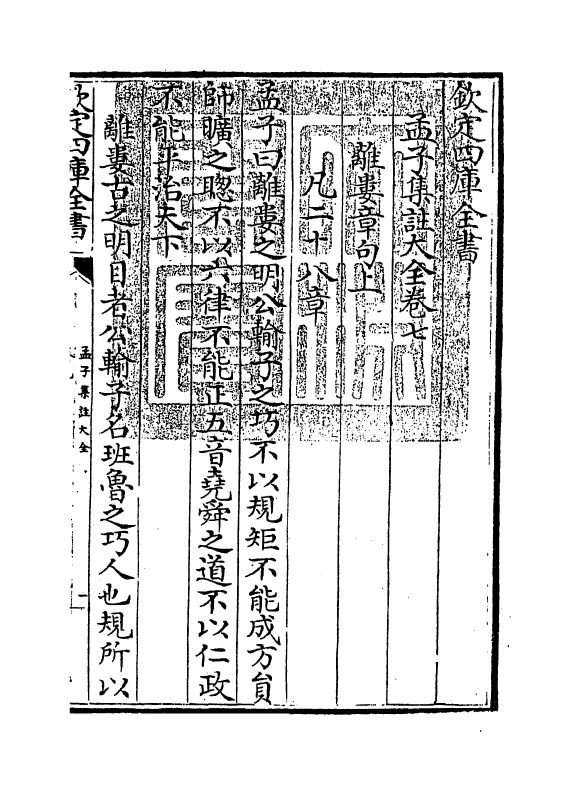 欽定四庫全書
孟子集註大全卷七
離婁章句上
凡二十八章
孟子曰離婁之明公輸子之巧不以規矩不能成方員
師曠之聰不以六律不能正五音堯舜之道不以仁政
不能平治天下
離婁古之明目者公輸子名班魯之巧人也規所以
欽定四庫全書
孟子集註大全
一